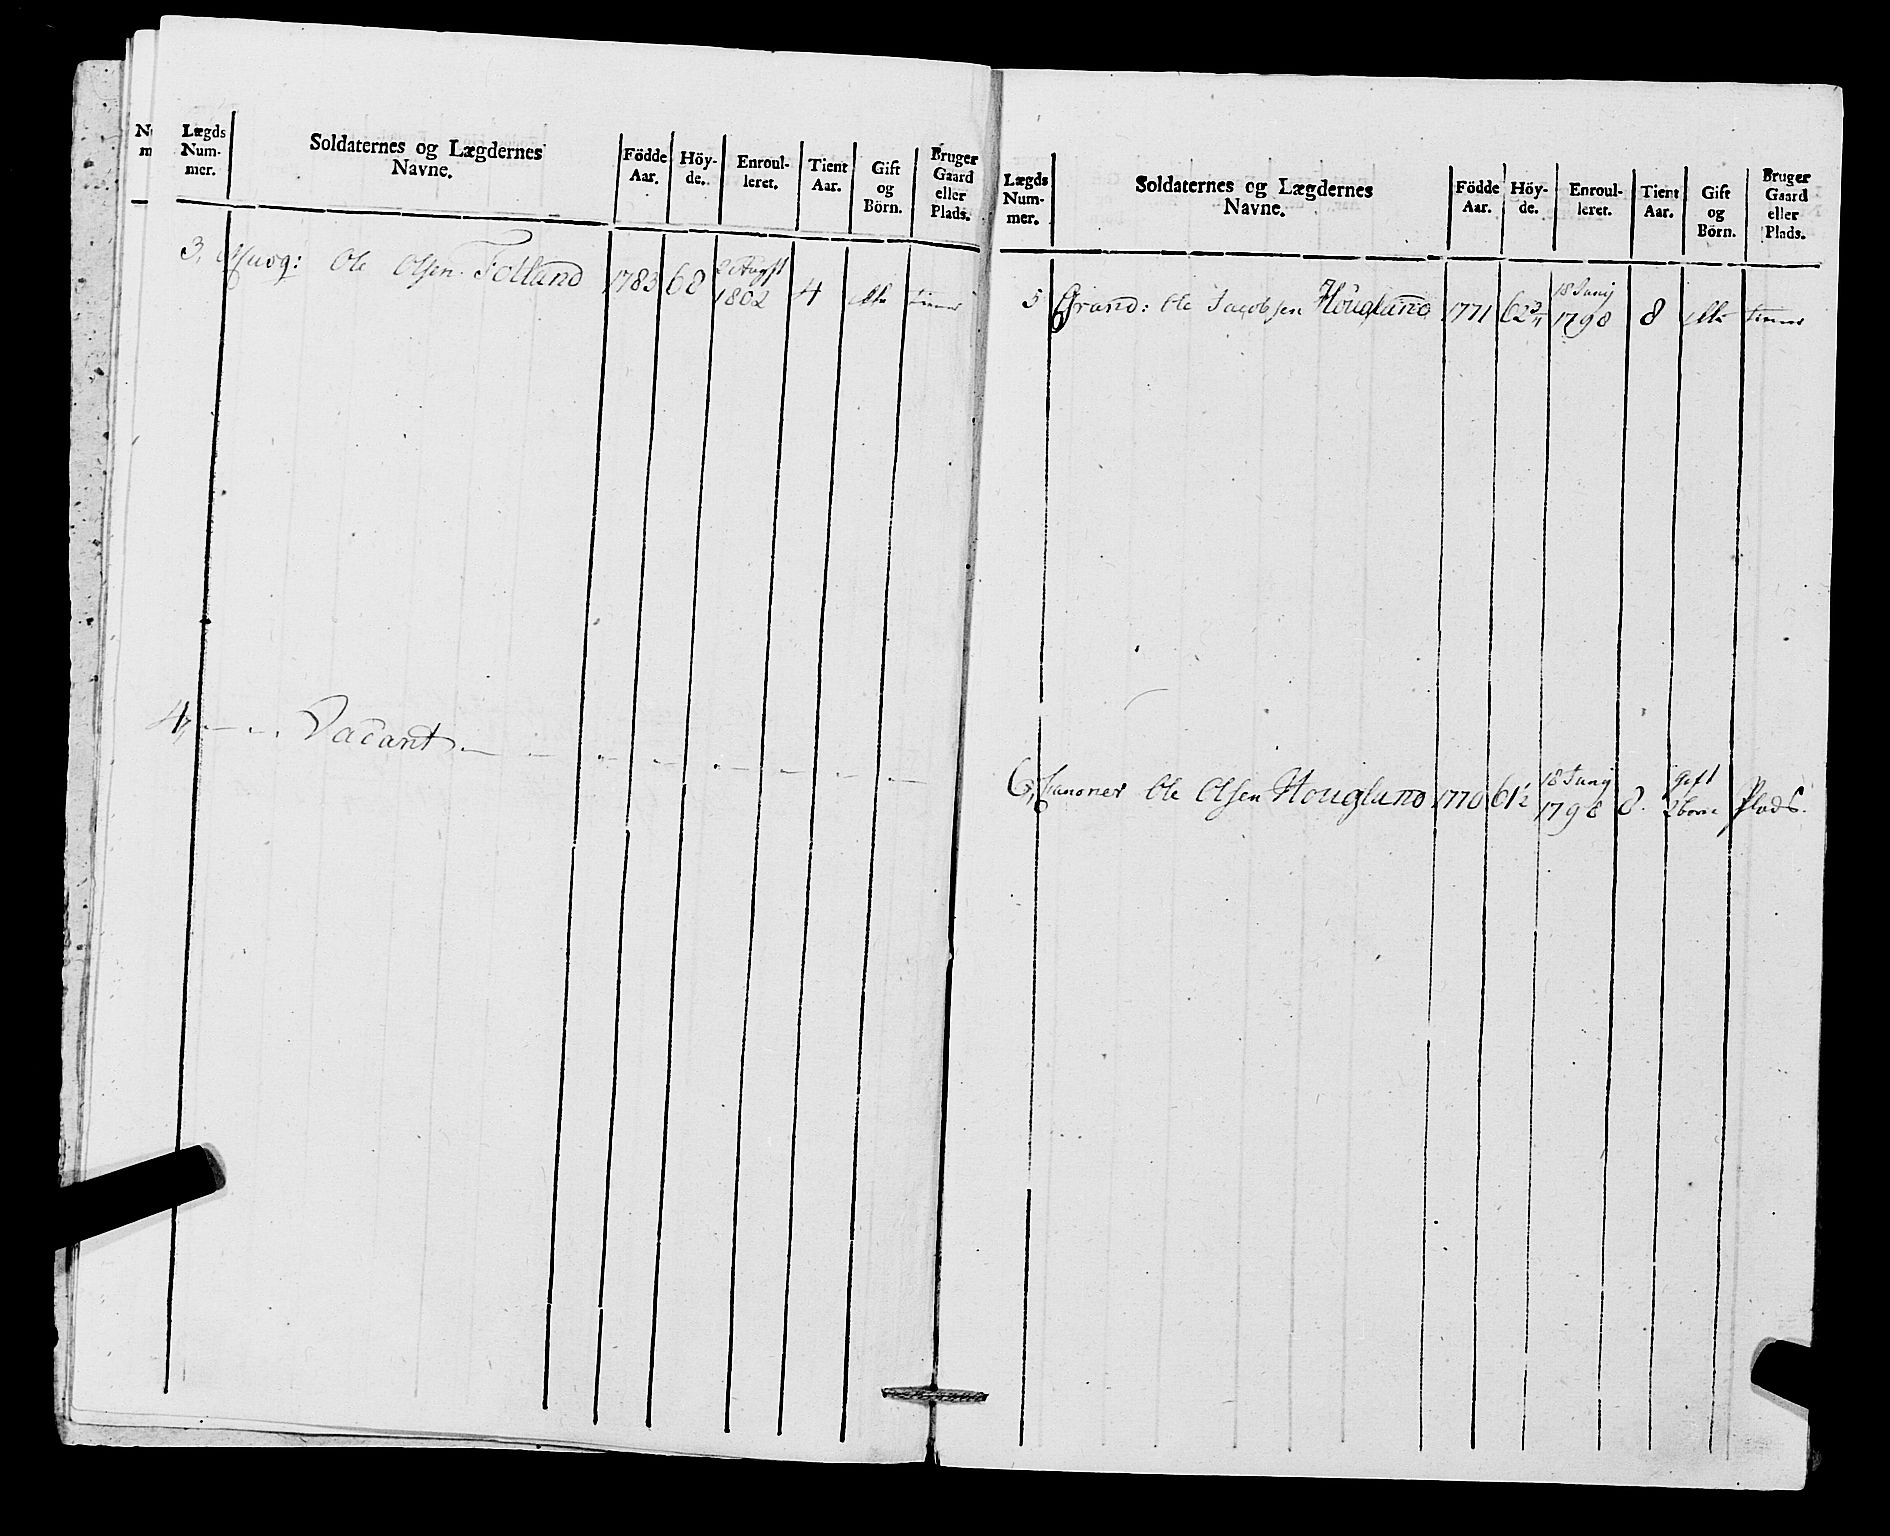 Lægds Num- mer.
Soldaternes og Lægdernes Navne.
Födde Aar.
Höy- de.
Enroul- leret.
Tient Aar.
Gift og Börn.
Bruger Gaard eller Plads.
3, Musq: Ole Olsen Folland 1783 68 2 Augst 1802 4 tiener
4, Vacant
Lægds Num- mer.
Soldaternes og Lægdernes Navne.
Födde Aar.
Höy- de.
Enroul- leret.
Tient Aar.
Gift og Börn.
Bruger Gaard eller Plads.
5 Grand: Ole Jacobsen Hougland 1771 62 3/4 18 Junij 1798 8 tiener
6, Canoner Ole Olsen Hougland 1770 61 1/2 18 Junij 1798 8. gift 2 born Plads.